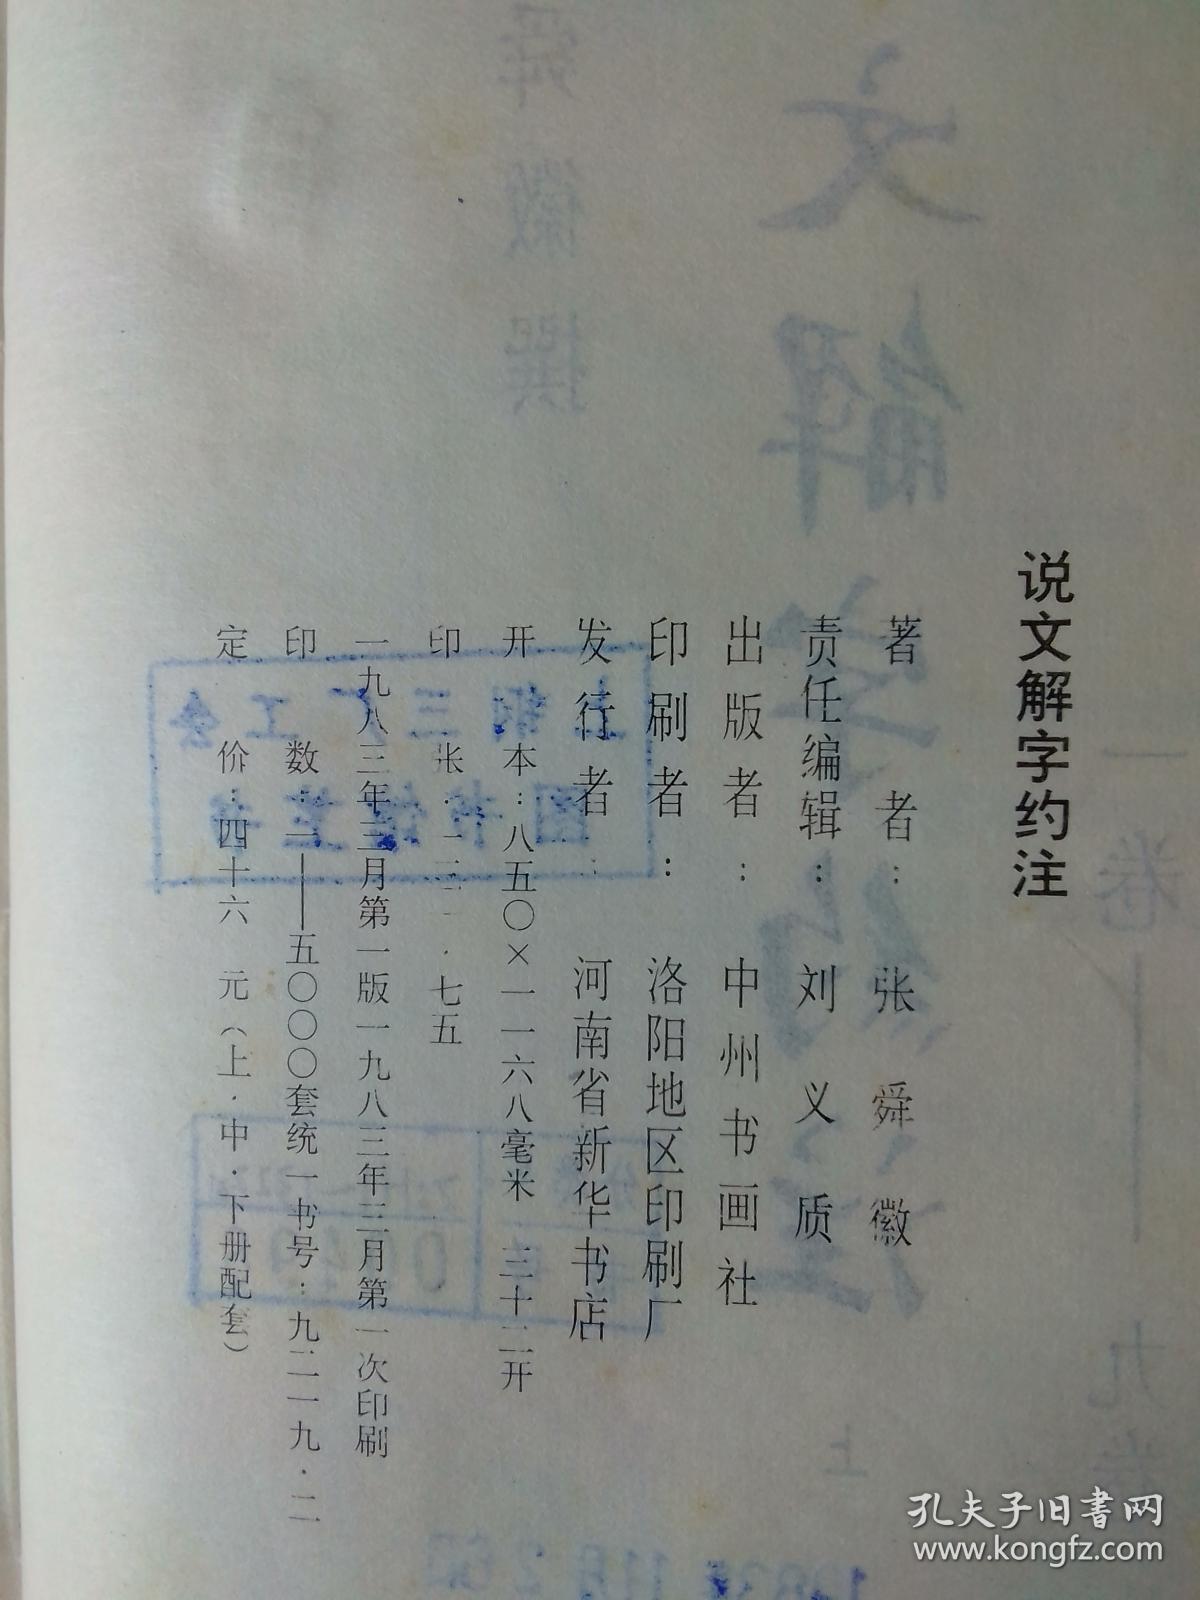 说文解字约注
著者：张舜徽
责任编辑：刘义质
出版者：中州书画社
印刷者：洛阳地区印刷厂
发行者：河南省新华书店
开本：八五〇×一一六八毫米 三十二开
印张
一九八三年三月第一版一九八三年三月第一次印刷
印数：一——五〇〇〇套统一书号：九二一九·二
定价：四十六元（上·中·下册配套）
孔夫子旧书网
www.kongfz.com